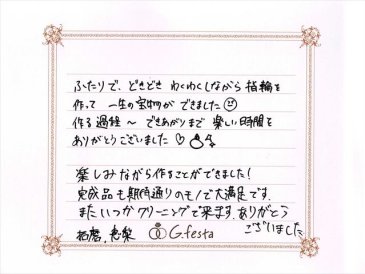 ふたりで、どきどき わくわくしながら 指輪を
作って 一生の宝物が できました
作る過程〜 できあがりまで 楽しい時間を
ありがとうございました♡
楽しみながら作ることができました!
完成品も期待通りのモノで大満足です。
またいつかクリーニングで来ます。ありがとう
ございました。
恵梨 G.festa